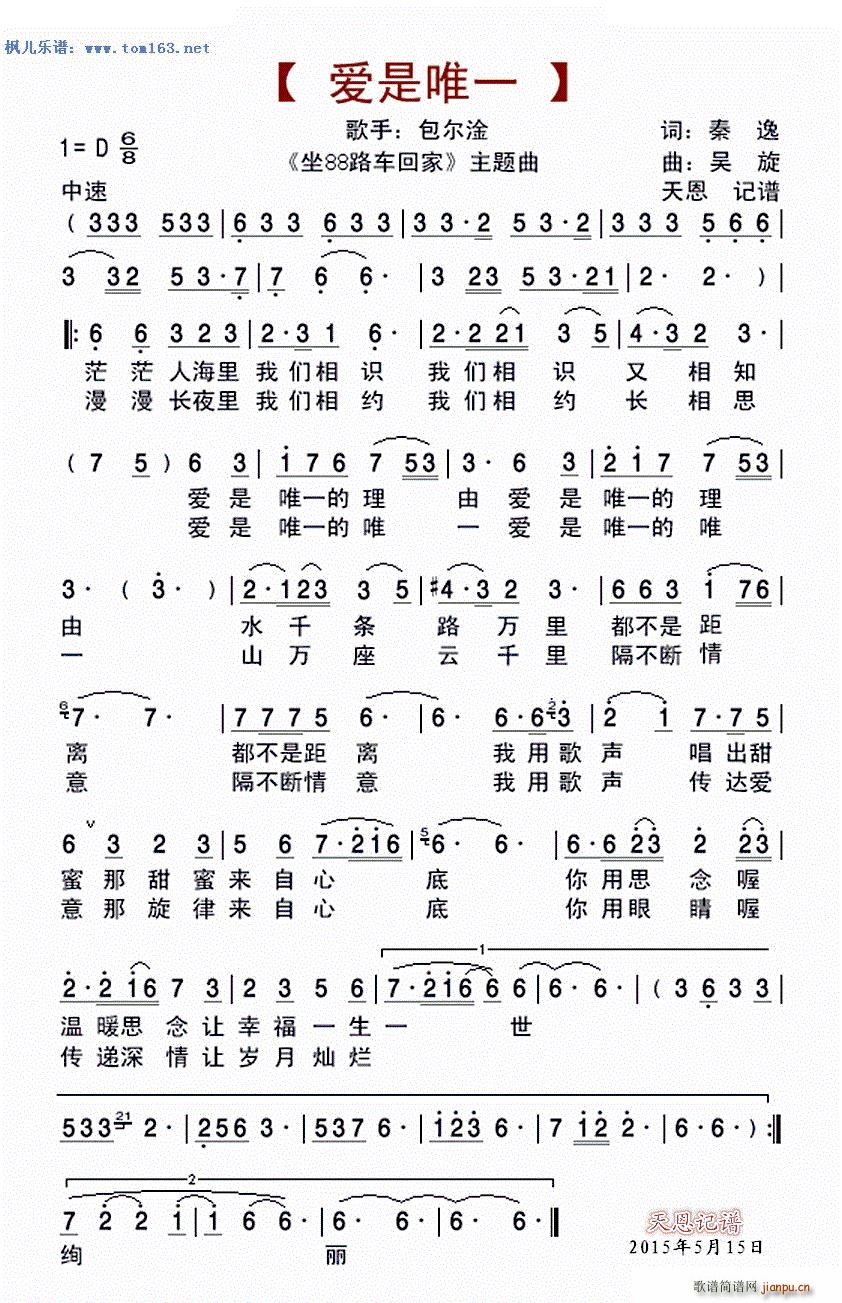 枫儿乐谱：www.tom163.net
【 爱是唯一 】
1= D 6/8
歌手：包尔淦
词：秦 逸
《坐88路车回家》主题曲
曲：吴 旋
中速
天恩 记谱
( 333 533 | 633 633 | 33·2 53·2 | 333 566 |
3 32 53·7 | 7 6 6· | 3 23 53·21 | 2· 2· ) |
‖: 6 6 323 | 2·31 6· | 2·221 3 5 | 4·32 3· |
茫 茫 人海里 我 们 相 识 我 们 相 识 又 相 知
漫 漫 长夜里 我 们 相 约 我 们 相 约 长 相 思
( 7 5 ) 6 3 | 176 7 53 | 3· 6 3 | 217 7 53 |
爱 是 唯一的 理 由 爱 是 唯一的 理
爱 是 唯一的 唯 一 爱 是 唯一的 唯
3· ( 3· ) | 2·123 3 5 | #4·32 3· | 663 1 76 |
由 水 千 条 路 万 里 都不是 距
一 山 万 座 云 千 里 隔不断 情
6 7· 7· | 7775 6· | 6· 6·623 | 2 1 7·75 |
离 都不是距 离 我 用 歌 声 唱 出 甜
意 隔不断情 意 我 用 歌 声 传 达 爱
6 ∨ 3 2 3 | 5 6 7·216 | 5 6· 6· | 6·623 2 23 |
蜜 那 甜 蜜 来 自 心 底 你 用 思 念 喔
意 那 旋 律 来 自 心 底 你 用 眼 睛 喔
1
2·216 7 3 | 2 3 5 6 | 7·216 6 6 | 6· 6· | ( 3 633 |
温 暖思 念 让 幸 福 一 生 一 世
传 递深 情 让 岁 月 灿 烂
533 21 2· | 256 3· | 537 6· | 123 6· | 7 12 2· | 6· 6· ) :‖
2
7 2 2 1 | 1 6 6· | 6· 6· | 6· 6· ‖
绚 丽
天恩记谱
2015年5月15日
歌谱简谱网 jianpu.cn